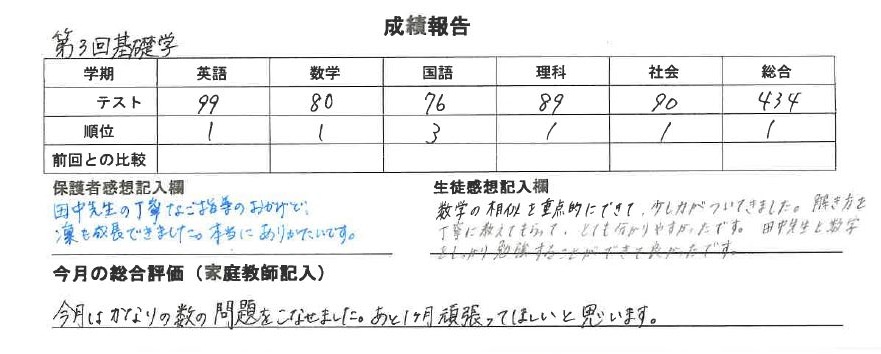 成績報告
第3回基礎学
学期 英語 数学 国語 理科 社会 総合
テスト 99 80 76 89 90 434
順位 1 1 3 1 1 1
前回との比較
保護者感想記入欄
田中先生の丁寧なご指導のおかげで、
凜も成長できました。本当にありがたいです。
生徒感想記入欄
数学の相似を重点的にできて、少し力がついてきました。解き方を
丁寧に教えてもらって、とても分かりやすかったです。田中先生と数学
をしっかり勉強することができて良かったです。
今月の総合評価（家庭教師記入）
今月はかなりの数の問題をこなせました。あと1ヶ月頑張ってほしいと思います。